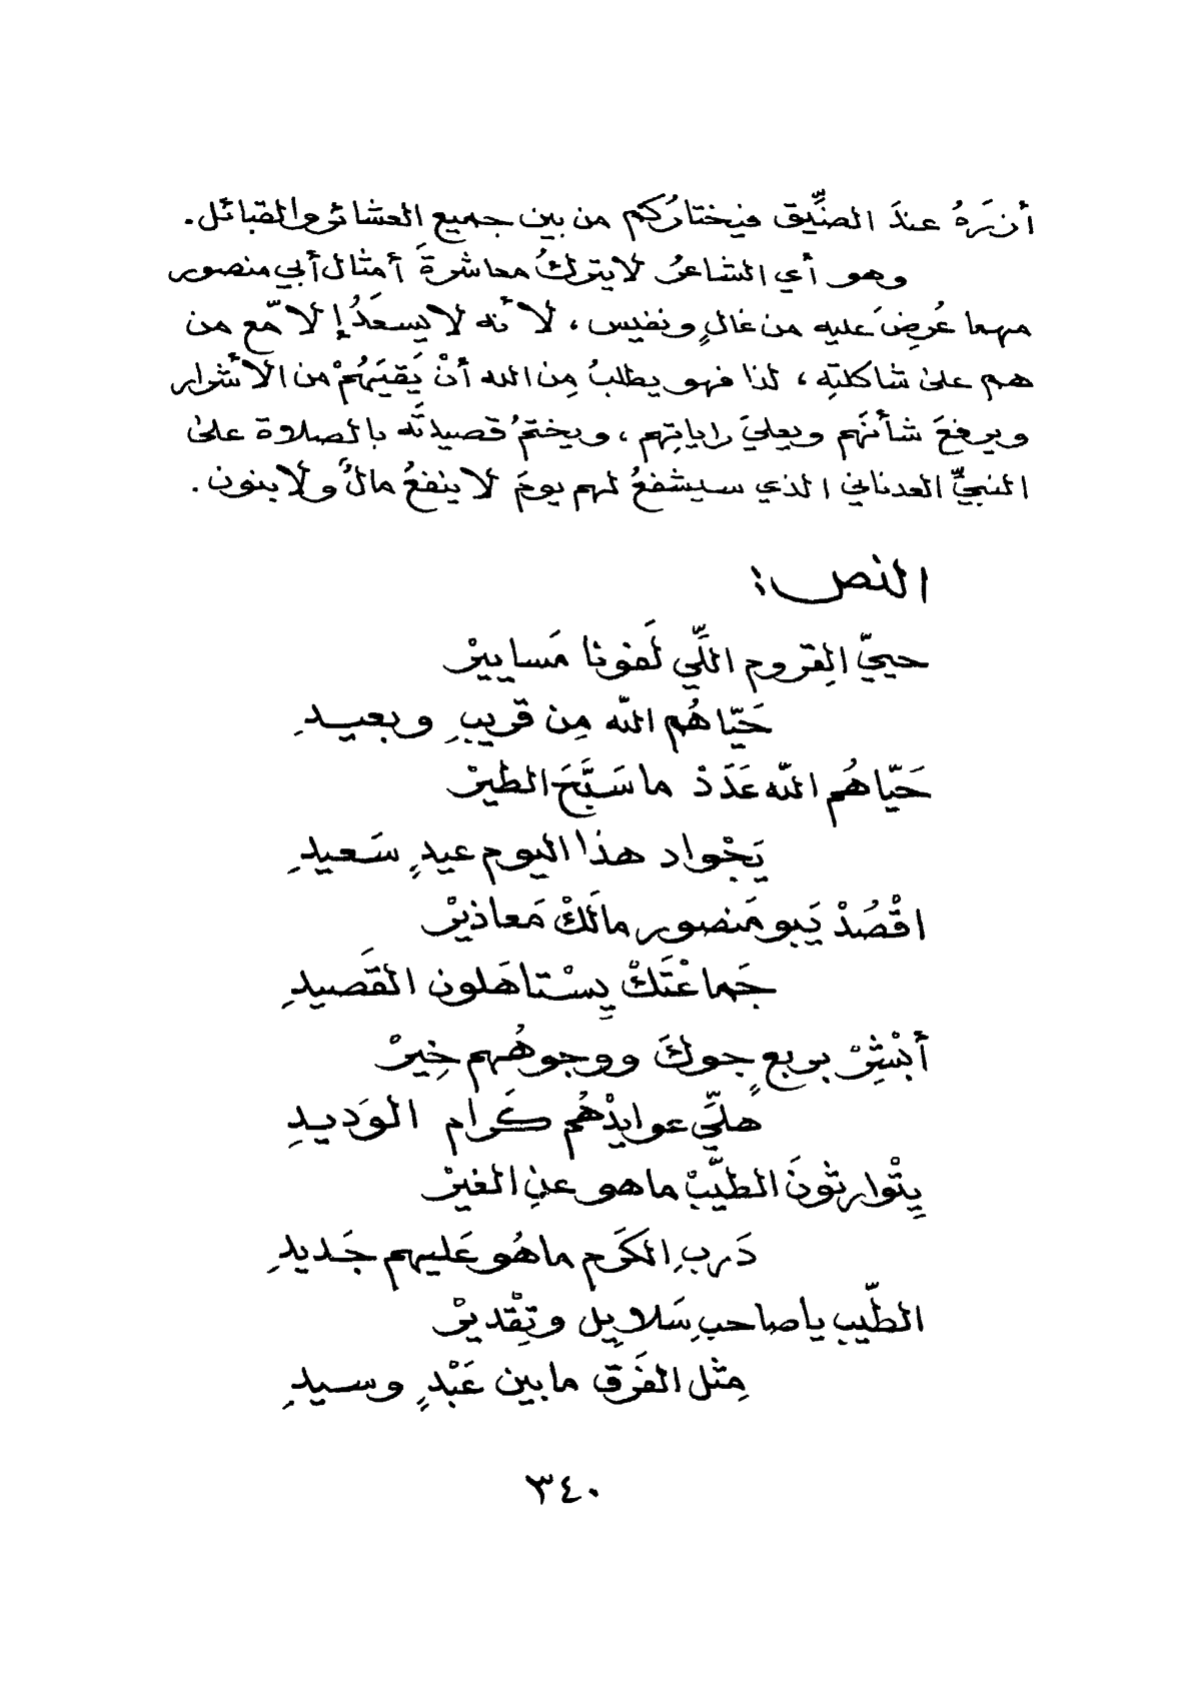 أزرَهُ عندَ الضِّيق فيختارُكم من بين جميع العشائر والقبائل.
وهو أي الشاعرُ لا يتركُ معاشرةَ أمثال أبي منصور
مهما عُرِضَ عليه من غالٍ ونفيس، لأنه لا يسعَدُ إلا مّع من
هم على شاكلتِه، لذا فهو يطلبُ مِن الله أنْ يَقيَهُمْ من الأشرار
ويرفعَ شأنَهم ويعليَ راياتِهم، ويختمُ قصيدتَه بالصلاة على
النبيِّ العدناني الذي سيشفعُ لهم يومَ لا ينفعُ مالٌ ولا بنون.
النص:
حييّ القِروم اللِّي لَفونا مَساييرْ
حَيّاهُم الله مِن قريبِ وبعيدِ
حَيّاهُم الله عَدَدْ ما سَبَّحَ الطيرْ
يَجْواد هذا اليوم عيدٍ سَعيدِ
اقْصُدْ يَبو مَنصور مالَكْ مَعاذيرْ
جَماعْتَكْ يِسْتاهَلون القَصيدِ
أبْشِرْ بربعٍ جوكَ ووجوهُهم خِيرْ
هلِّي عوايدْهُم كَرام الوَديدِ
يِتْوارثونَ الطيّبْ ماهو عنِ الغيرْ
دَربِ الكَرَم ماهُو عَليهم جَديدِ
الطّيب يا صاحب سَلايِل وتِقْديرْ
مِثل الفَرق ما بين عَبْدٍ وسيدِ
٣٤٠